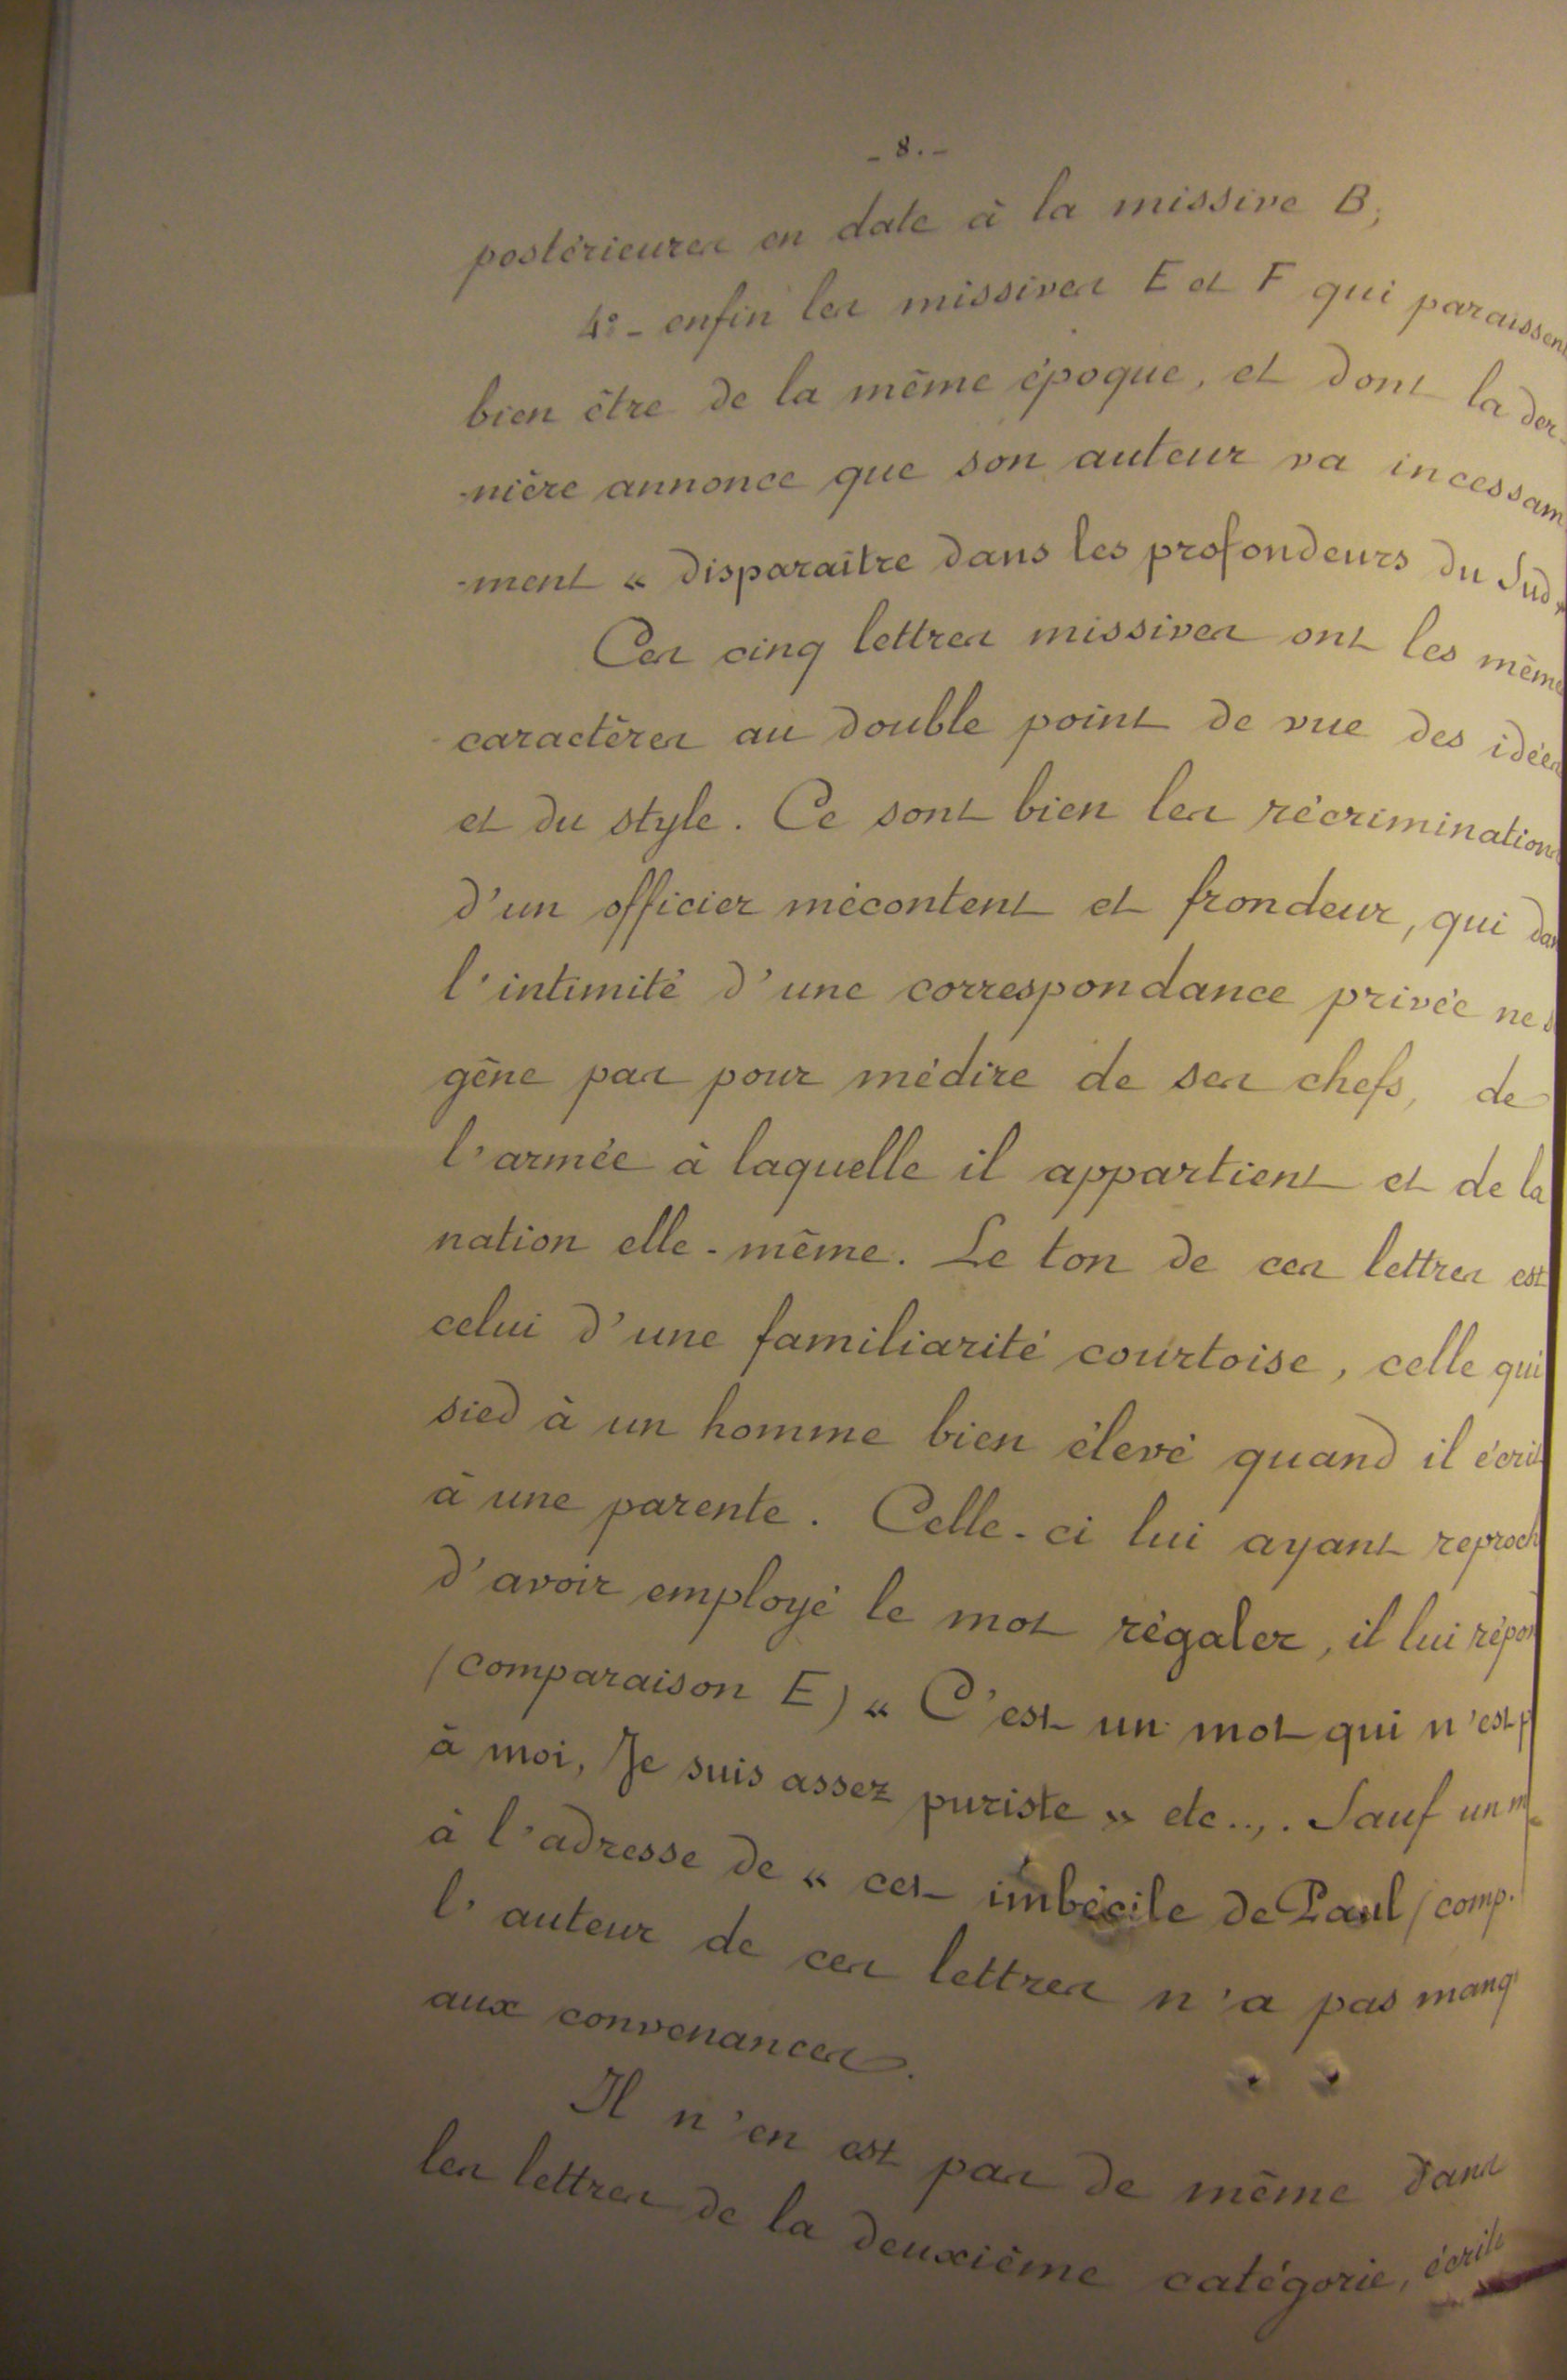 - 8. -
postérieures en date à la missive B;
4°- enfin les missives E et F qui paraissent
bien être de la même époque, et dont la der-
-nière annonce que son auteur va incessam
-ment « disparaître dans les profondeurs du Sud »
Ces cinq lettres missives ont les même
caractères au double point de vue des idées
et du style. Ce sont bien les récriminations
d'un officier mécontent et frondeur, qui dan
l'intimité d'une correspondance privée ne s
gêne pas pour médire de ses chefs, de
l'armée à laquelle il appartient et de la
nation elle-même. Le ton de ces lettres est
celui d'une familiarité courtoise, celle qui
sied à un homme bien élevé quand il écrit
à une parente. Celle-ci lui ayant reproch
d'avoir employé le mot régaler, il lui répon
(comparaison E) « C'est un mot qui n'est p
à moi, Je suis assez puriste » etc... Sauf un m
à l'adresse de « cet imbécile de Paul (comp.
l'auteur de ces lettres n'a pas manq
aux convenances.
Il n'en est pas de même dans
les lettres de la deuxième catégorie, écrite